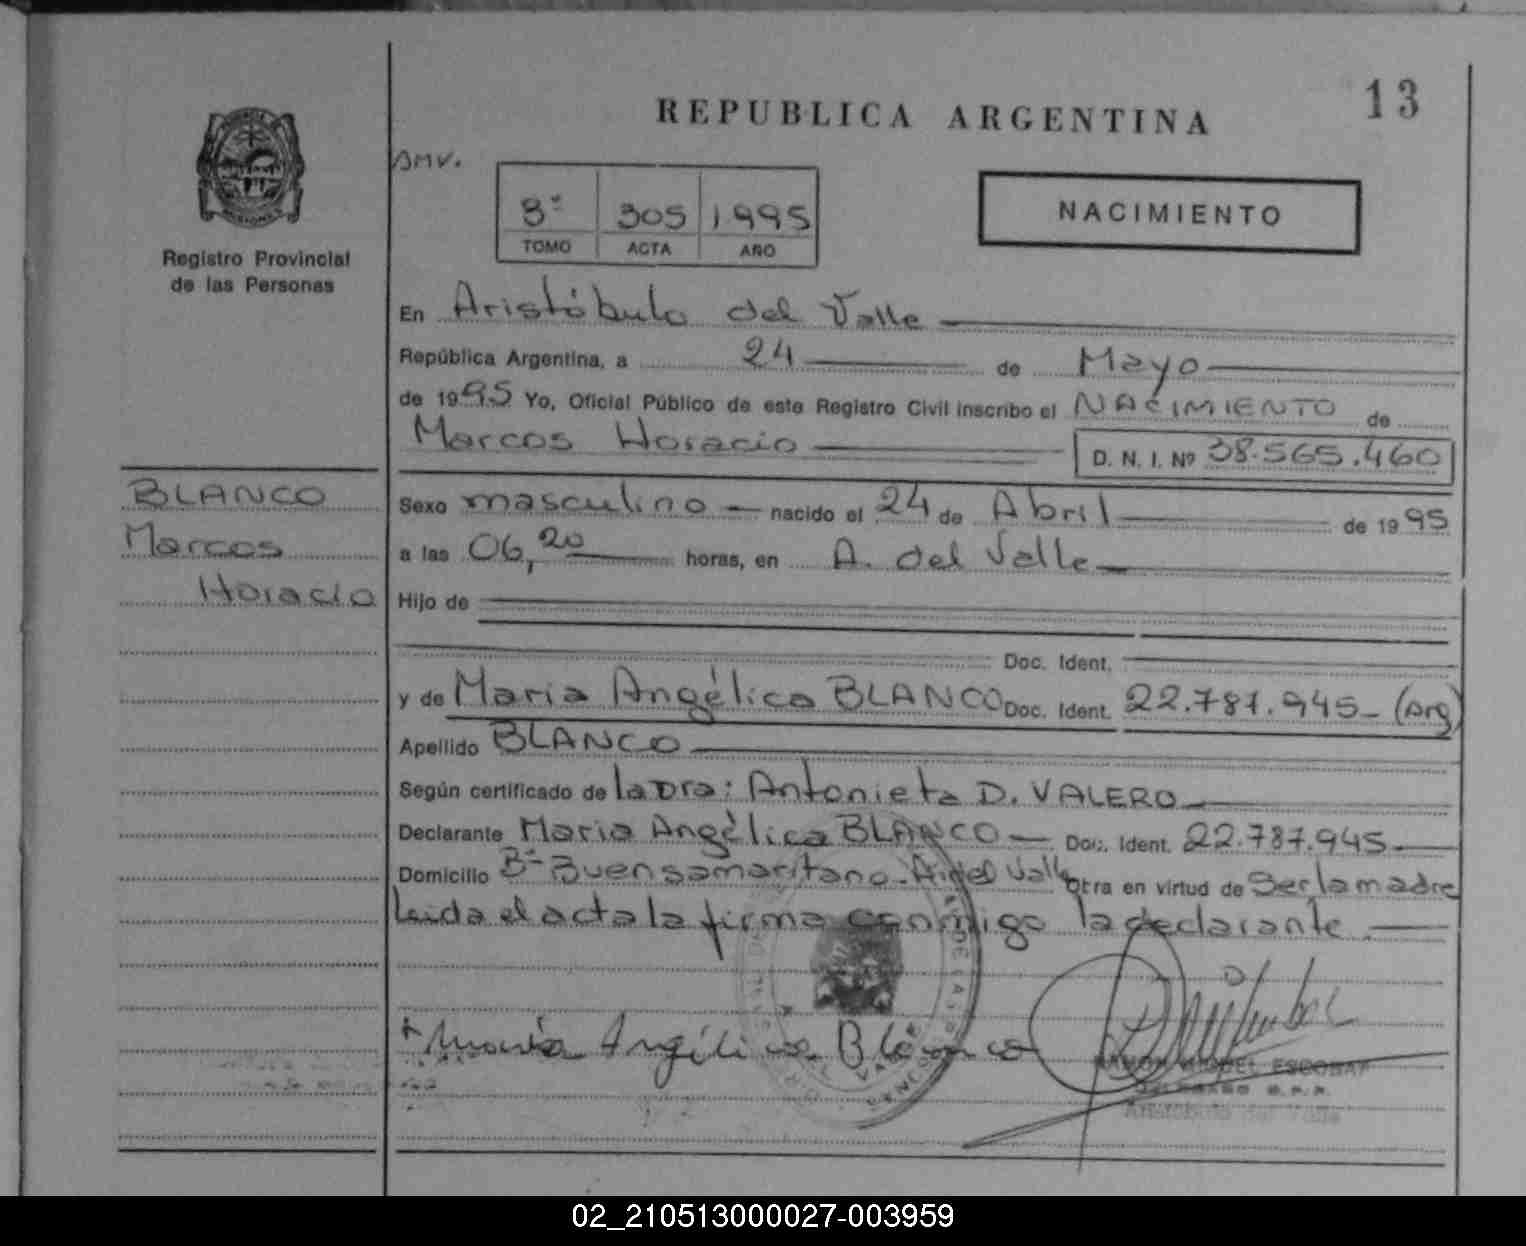 13
REPUBLICA ARGENTINA
AMV.
Registro Provincial
de las Personas
3º 305 1.995
TOMO ACTA AÑO
NACIMIENTO
En Aristóbulo del Valle
República Argentina, a 24 de Mayo
de 1995 Yo, Oficial Público de este Registro Civil inscribo el NACIMIENTO de
Marcos Horacio D. N. I. Nº 38.565.460
BLANCO
Marcos
Horacio
Sexo masculino nacido el 24 de Abril de 1995
a las 06,20 horas, en A. del Valle
Hijo de
Doc. Ident.
y de Maria Angélica BLANCO Doc. Ident. 22.787.945- (Arg)
Apellido BLANCO
Según certificado de la Dra: Antonieta D. VALERO
Declarante Maria Angélica BLANCO Doc. Ident. 22.787.945
Domicilio Bº Buen samaritano-A. del Valle Obra en virtud de Ser la madre
Leida el acta la firma conmigo la declarante
Maria Angélica Blanco
RAMON MIGUEL ESCOBAR
Aristobulo del Valle
02_210513000027-003959